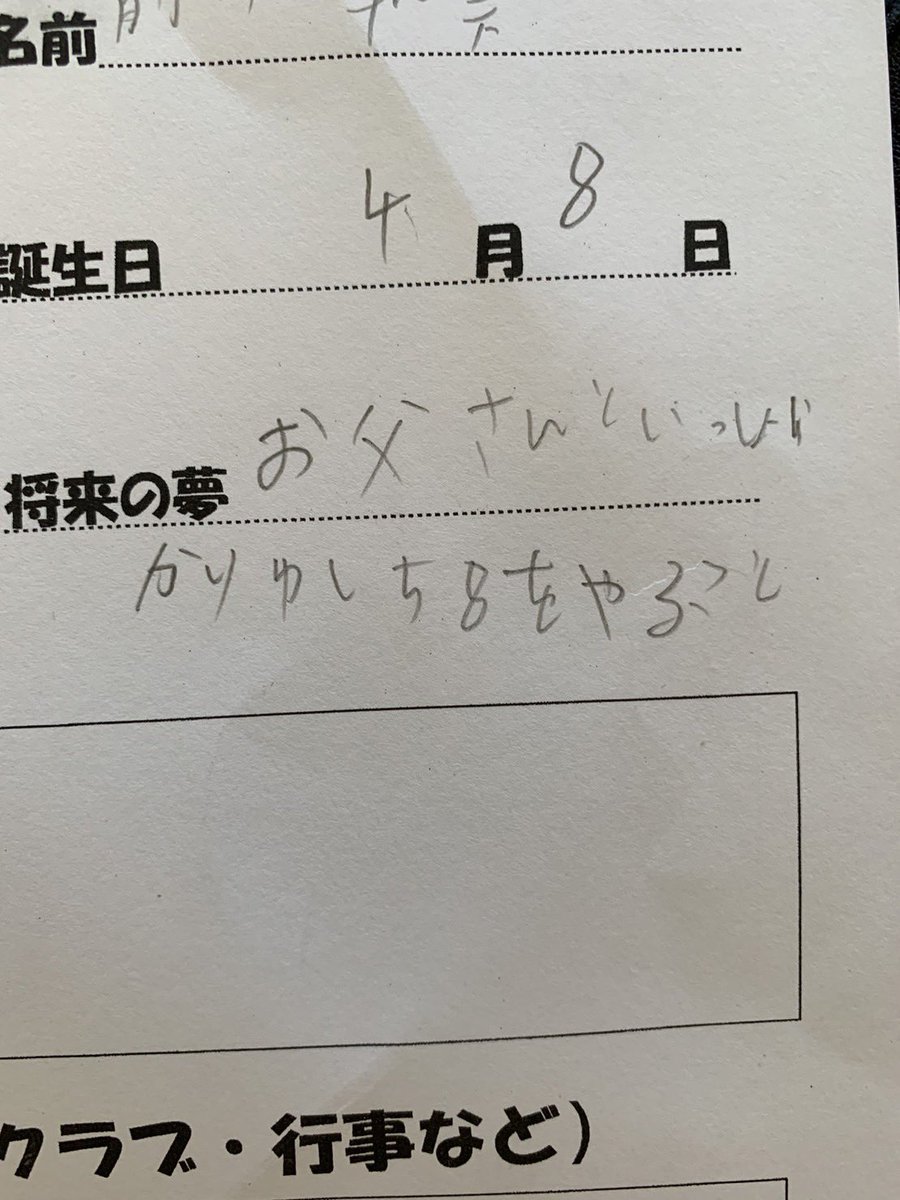 名前
誕生日 4月8日
将来の夢 お父さんといっしょに
かりゆし58をやること
クラブ・行事など)